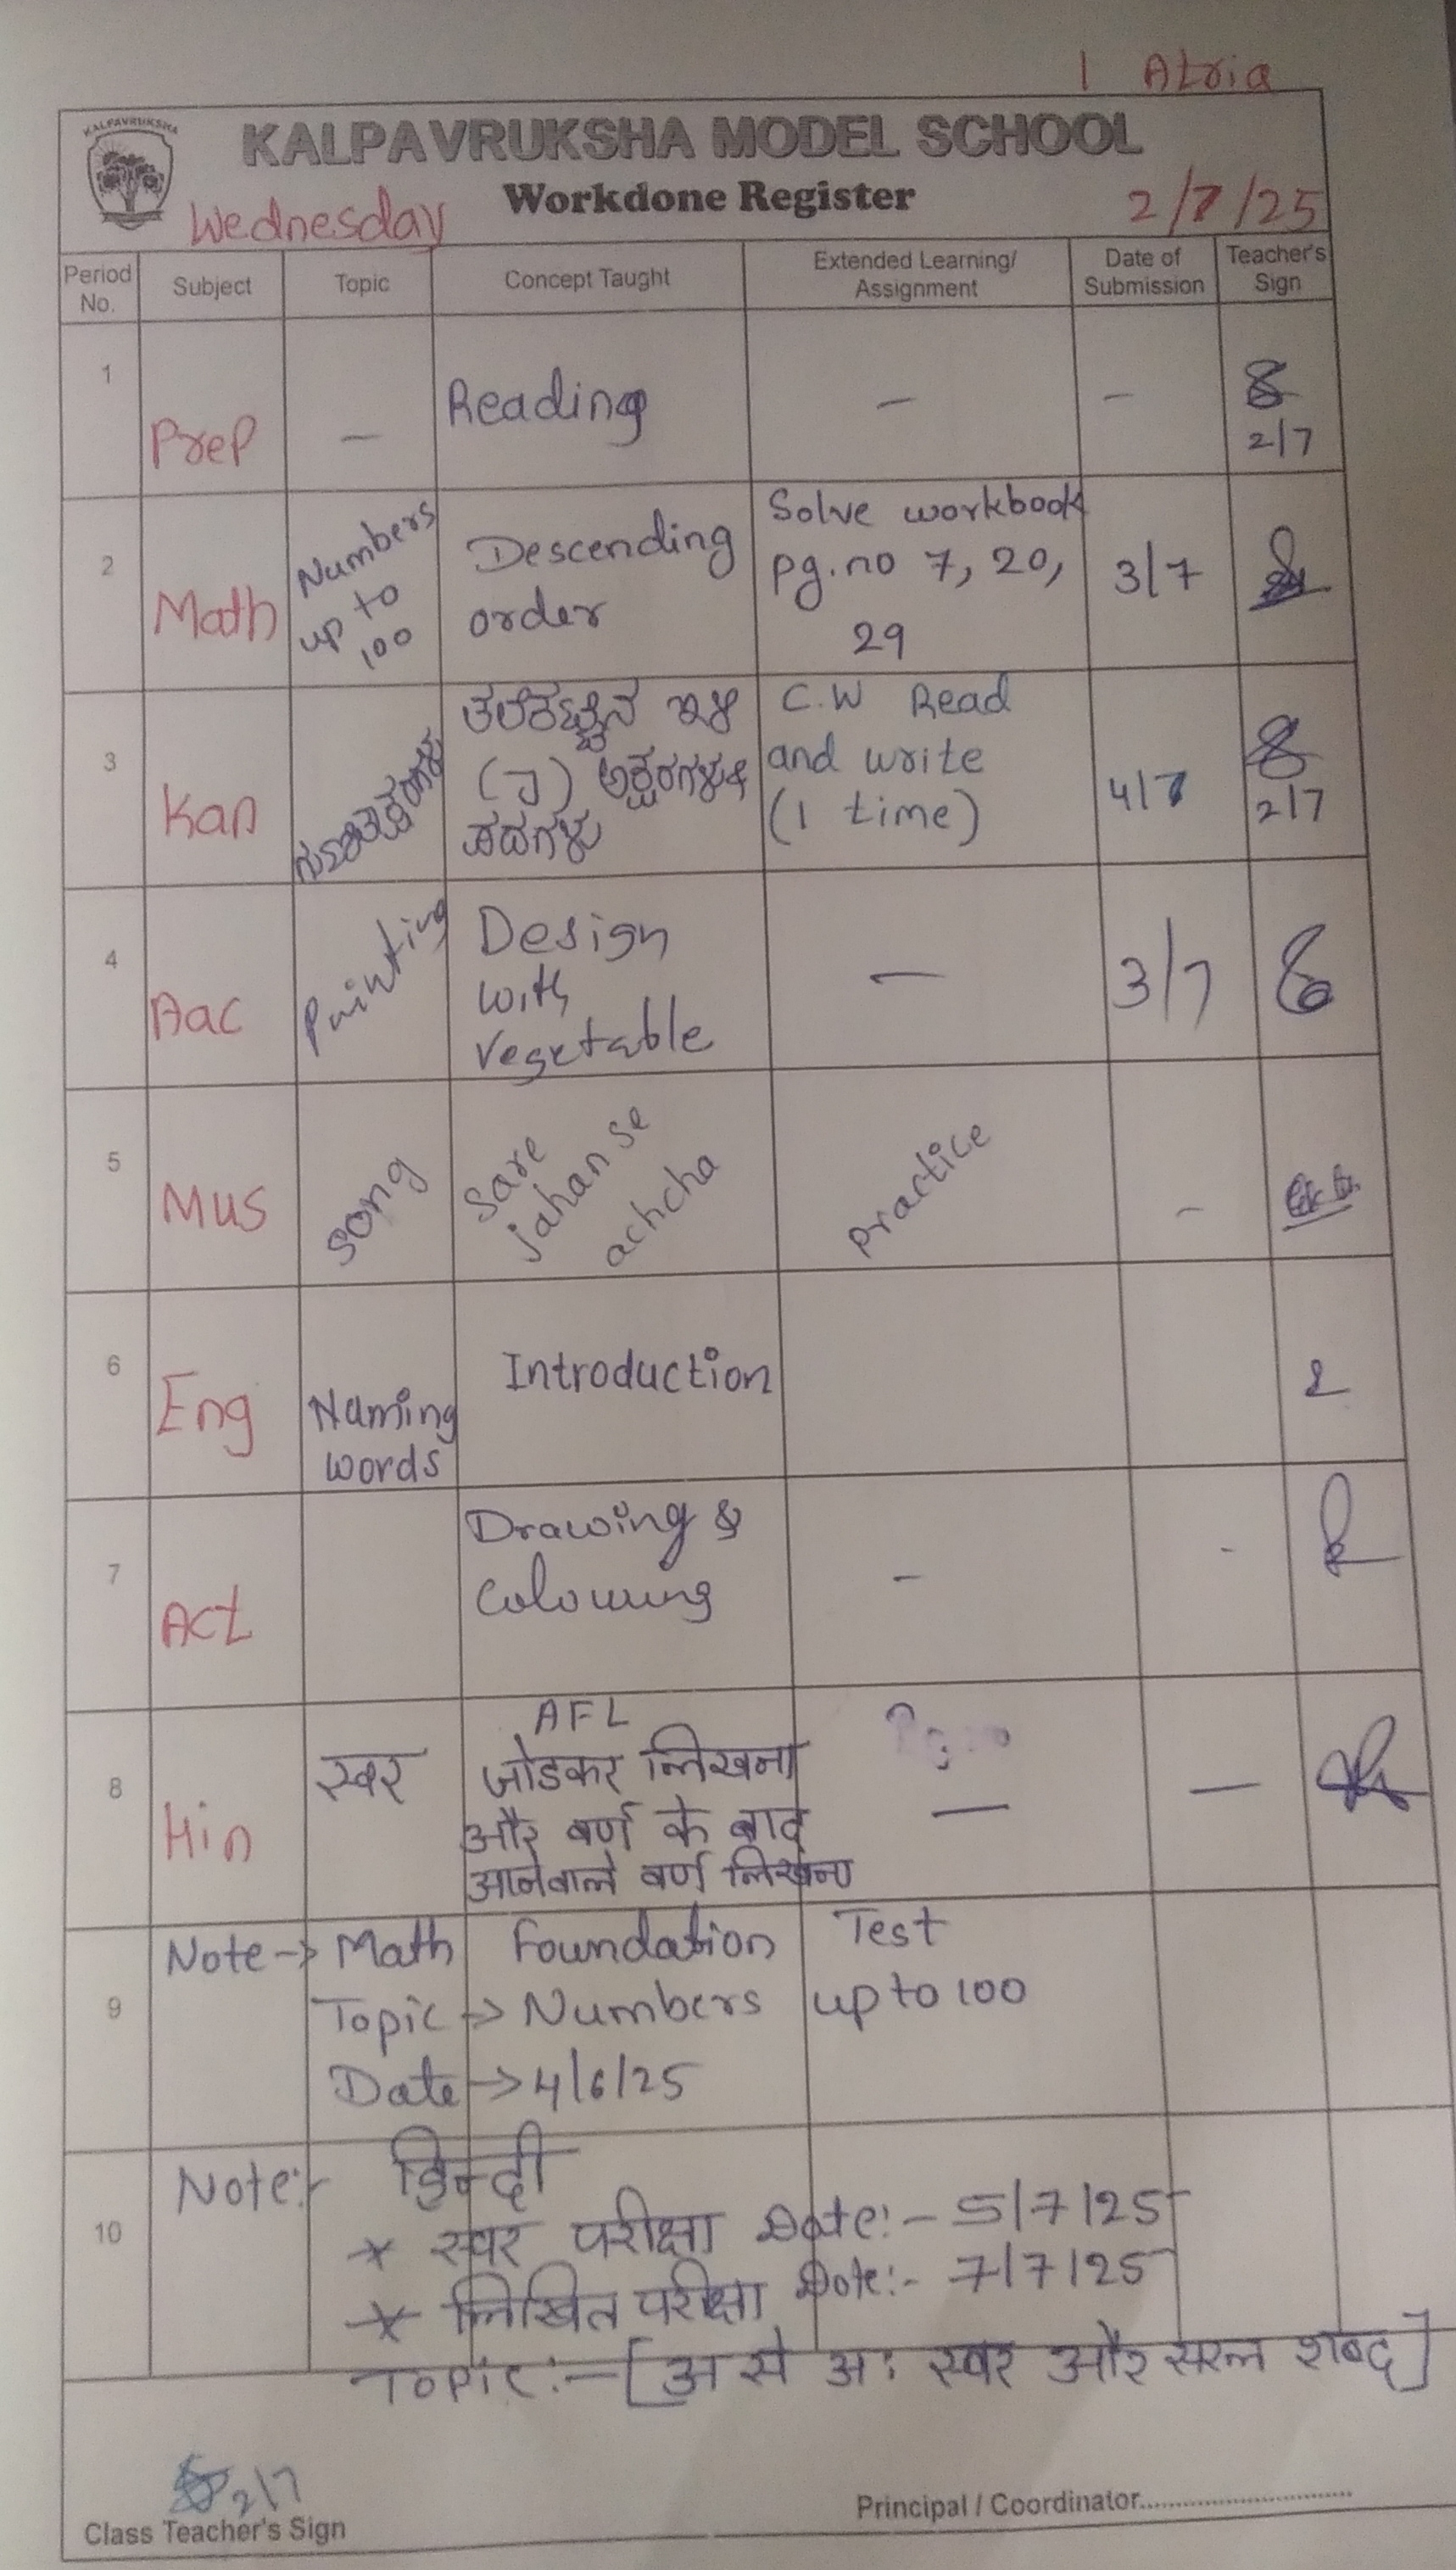 1 Atria
KALPAVRUKSHA
KALPAVRUKSHA MODEL SCHOOL
Workdone Register
Wednesday
2/7/25
Period No.
Subject
Topic
Concept Taught
Extended Learning/
Assignment
Date of
Submission
Teacher's
Sign
1
Prep
–
Reading
–
–
2/7
2
Math
Numbers
up to
100
Descending
order
Solve workbook
pg.no 7, 20,
29
3/7
3
Kan
ಗುಣಿತಾಕ್ಷರಗಳು
ತಲೆಕಟ್ಟಿನ ಇಳಿ
(ಾ) ಅಕ್ಷರಗಳು &
ಪದಗಳು
C.W Read
and write
(1 time)
4/7
2/7
4
Aac
Painting
Design
with
Vegetable
–
3/7
5
Mus
Song
Sare
jahan se
achcha
Practice
-
6
Eng
Naming
words
Introduction
7
Act
Drawing &
Colouring
-
-
8
Hin
स्वर
AFL
जोडकर लिखना
और वर्ण के बाद
आनेवाले वर्ण लिखना
–
–
9
Note -> Math Foundation Test
Topic -> Numbers up to 100
Date -> 4/6/25
10
Note:- हिन्दी
* स्वर परीक्षा Date:- 5/7/25
* लिखित परीक्षा Date:- 7/7/25
Topic:- [अ से अः स्वर और सरल शब्द]
2/7
Class Teacher's Sign
Principal / Coordinator..............................